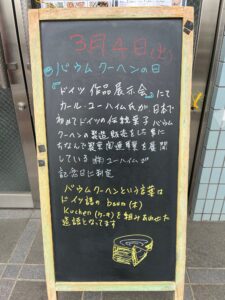 3月4日(火)
バウムクーヘンの日
『ドイツ作品展示会』にて
カール・ユーハイム氏が日本で
初めてドイツの伝統菓子バウム
クーヘンの製造販売をした事に
ちなんで製菓関連事業を展開
している(株)ユーハイムが
記念日に制定
バウムクーヘンという言葉は
ドイツ語の baum (木)
Kuchen (ケーキ)を組みあわせた
造語となってます